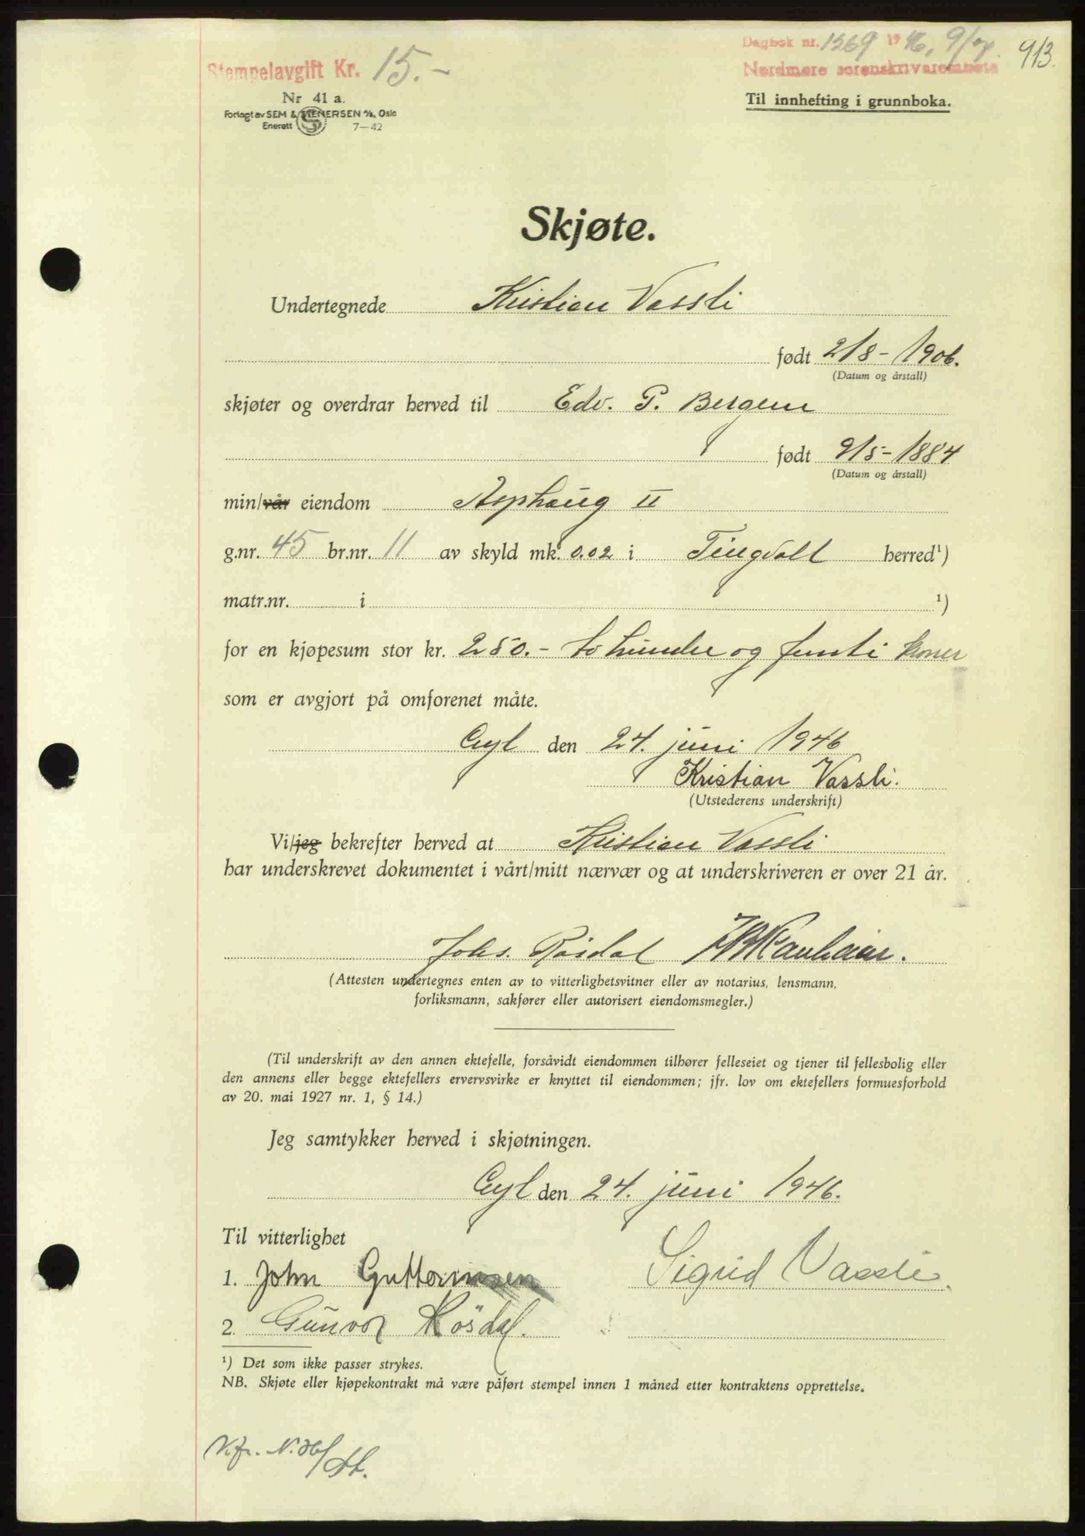 Stempelavgift Kr. 15.-
Dagbok nr. 1269 1946, 9/7. 913.
Nordmøre sorenskriverembete
Nr 41 a.
Forlagt av SEM & STENERSEN A/S, Oslo
Enerett 7-42
Til innhefting i grunnboka.
Skjøte.
Undertegnede Kristian Vassli
født 2/8-1906.
(Datum og årstall)
skjøter og overdrar herved til Edv. P. Bergem
født 9/5-1884
(Datum og årstall)
min/vår eiendom Asphaug II
g.nr. 45 br.nr. 11 av skyld mk. 0.02 i Tingvoll herred¹)
matr.nr. i ¹)
for en kjøpesum stor kr. 250.- to hundre og femti kroner
som er avgjort på omforenet måte.
Gyl den 24. juni 1946
Kristian Vassli.
(Utstederens underskrift)
Vi/jeg bekrefter herved at Kristian Vassli
har underskrevet dokumentet i vårt/mitt nærvær og at underskriveren er over 21 år.
Johs. Røsdal
(Attesten undertegnes enten av to vitterlighetsvitner eller av notarius, lensmann,
forliksmann, sakfører eller autorisert eiendomsmegler.)
(Til underskrift av den annen ektefelle, forsåvidt eiendommen tilhører felleseiet og tjener til fellesbolig eller
den annens eller begge ektefellers ervervsvirke er knyttet til eiendommen; jfr. lov om ektefellers formuesforhold
av 20. mai 1927 nr. 1, § 14.)
Jeg samtykker herved i skjøtningen.
Gyl den 24. juni 1946.
Til vitterlighet
1. John Guttormsen Sigrid Vassli.
2. Gunvor Røsdal.
¹) Det som ikke passer strykes.
NB. Skjøte eller kjøpekontrakt må være påført stempel innen 1 måned etter kontraktens opprettelse.